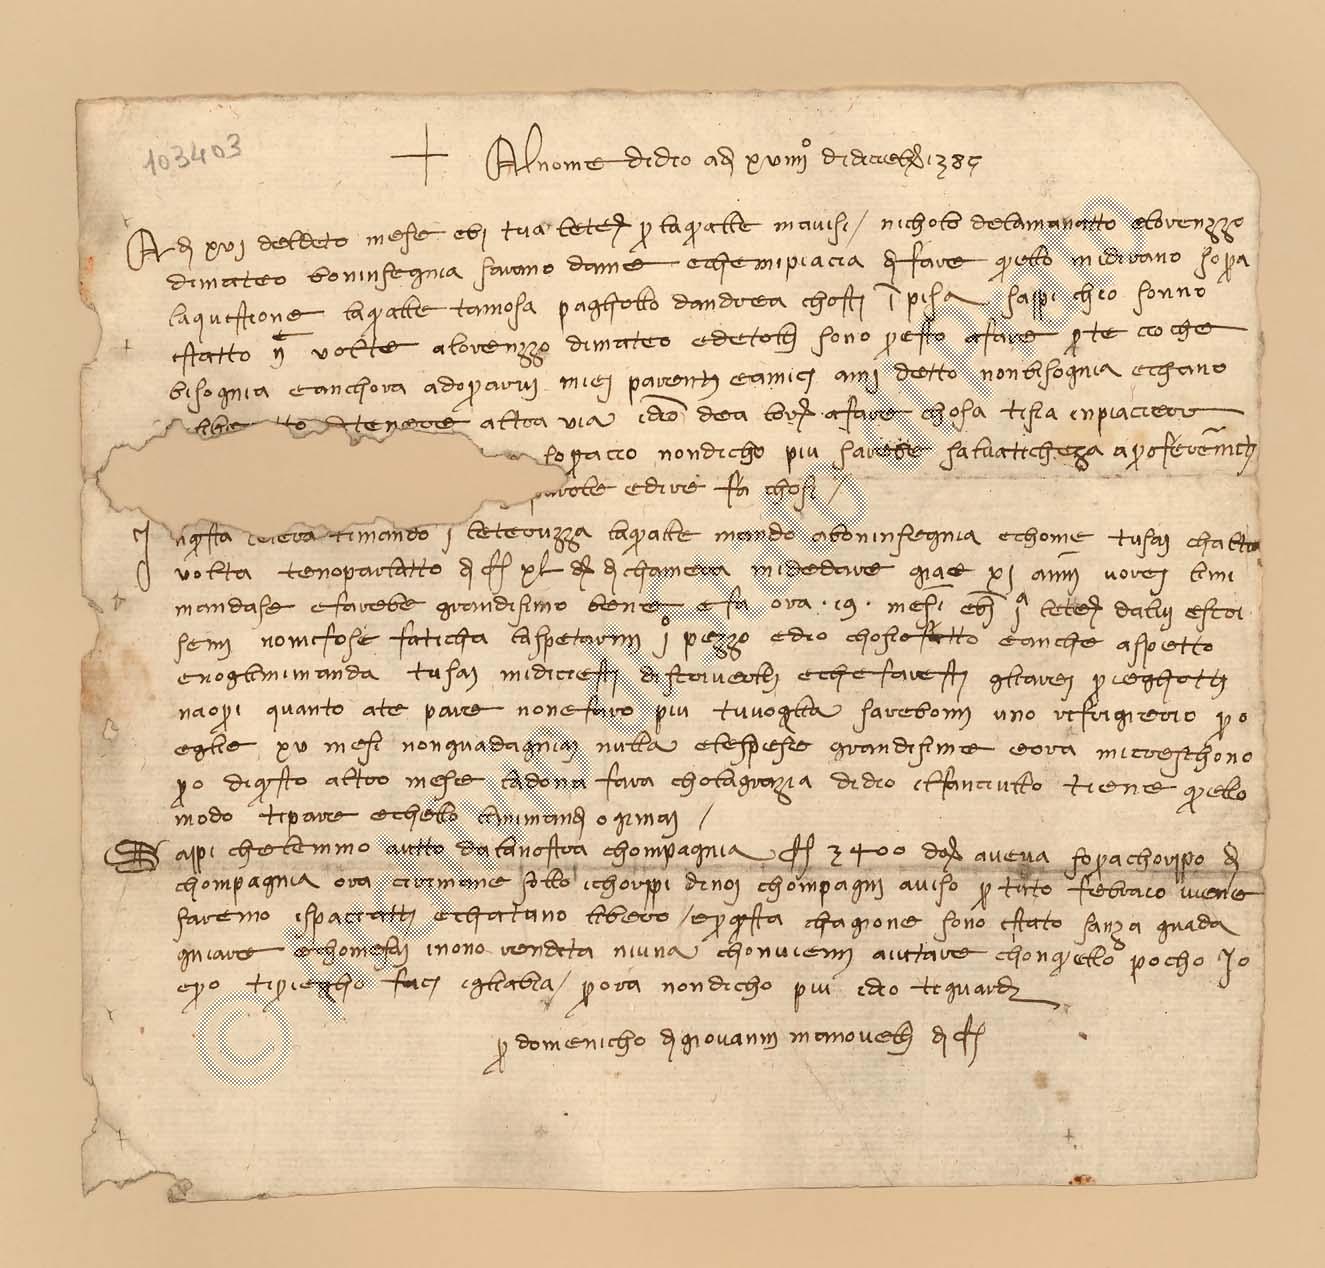 103403
+ Al nome di dio adi xviiiiº di diciebr 1385
Adi xvi deldeto mese ebi tua letera p laquale mavisi / nicholo delamanatto elorenzzo
dimateo boninsegnia sarano dame echemipiacia di fare quelo midirano sopra
laquistione laquale tamosa paghollo dandrea chosti ī pisa sappi chio sonno
istatto ñ volte alorenzzo dimateo edetoli sono presto afare p te cio che
bisognia eanchora adoparvi miei parenti eamici ami detto nonbisognia echano
tenere altra via idio dea lor afare chosa tisia inpiaciere
sopracio nondicho piu sarebe salvaticheza aproferēmiti
parole edire fa chosi /
Inquesta letera timando j leteruzza laquale mando aboninsegnia echome tusai chaltra
volta tenoparlatto di f xl di chamera midedare giae xi anni vorei lmi
mandase efarebe grandisimo bene e fa ora . 19 . mesi ebi jª letera dalui escri
semi nonifose faticha laspetarmi jº pezzo edio chosiofatto eanche aspetto
enoglimimanda tusai midiciesti discriverli echefaresti gliarei priegholti
naopri quanto ate pare nonefaro piu tuvoglia sarebomi uno rifrigierio po
eglie xv mesi nonguadagniai nulla elespesie grandisime eora micreschono
po diquesto altro mese ladona fara cholagrazia didio ilfanciullo tiene quelo
modo tipare echelo
Sappi chelemmo autto dalanostra chompagnia f 3400 doro aveva sopracchorppo di
chompagnia ora cirimane solo ichorppi dinoi chompagni aviso p tuto febraio viene
saremo ispacciatti echatuno libero / epquesta chagione sono istato sanza guada
gniare echomesai inono rendita niuna chonviemi aiutare chonquelo pocho jo
epo tipriegho faci iglabia / pora nondicho piu idio tiguardi
p domenicho di giovanni manovelli di f